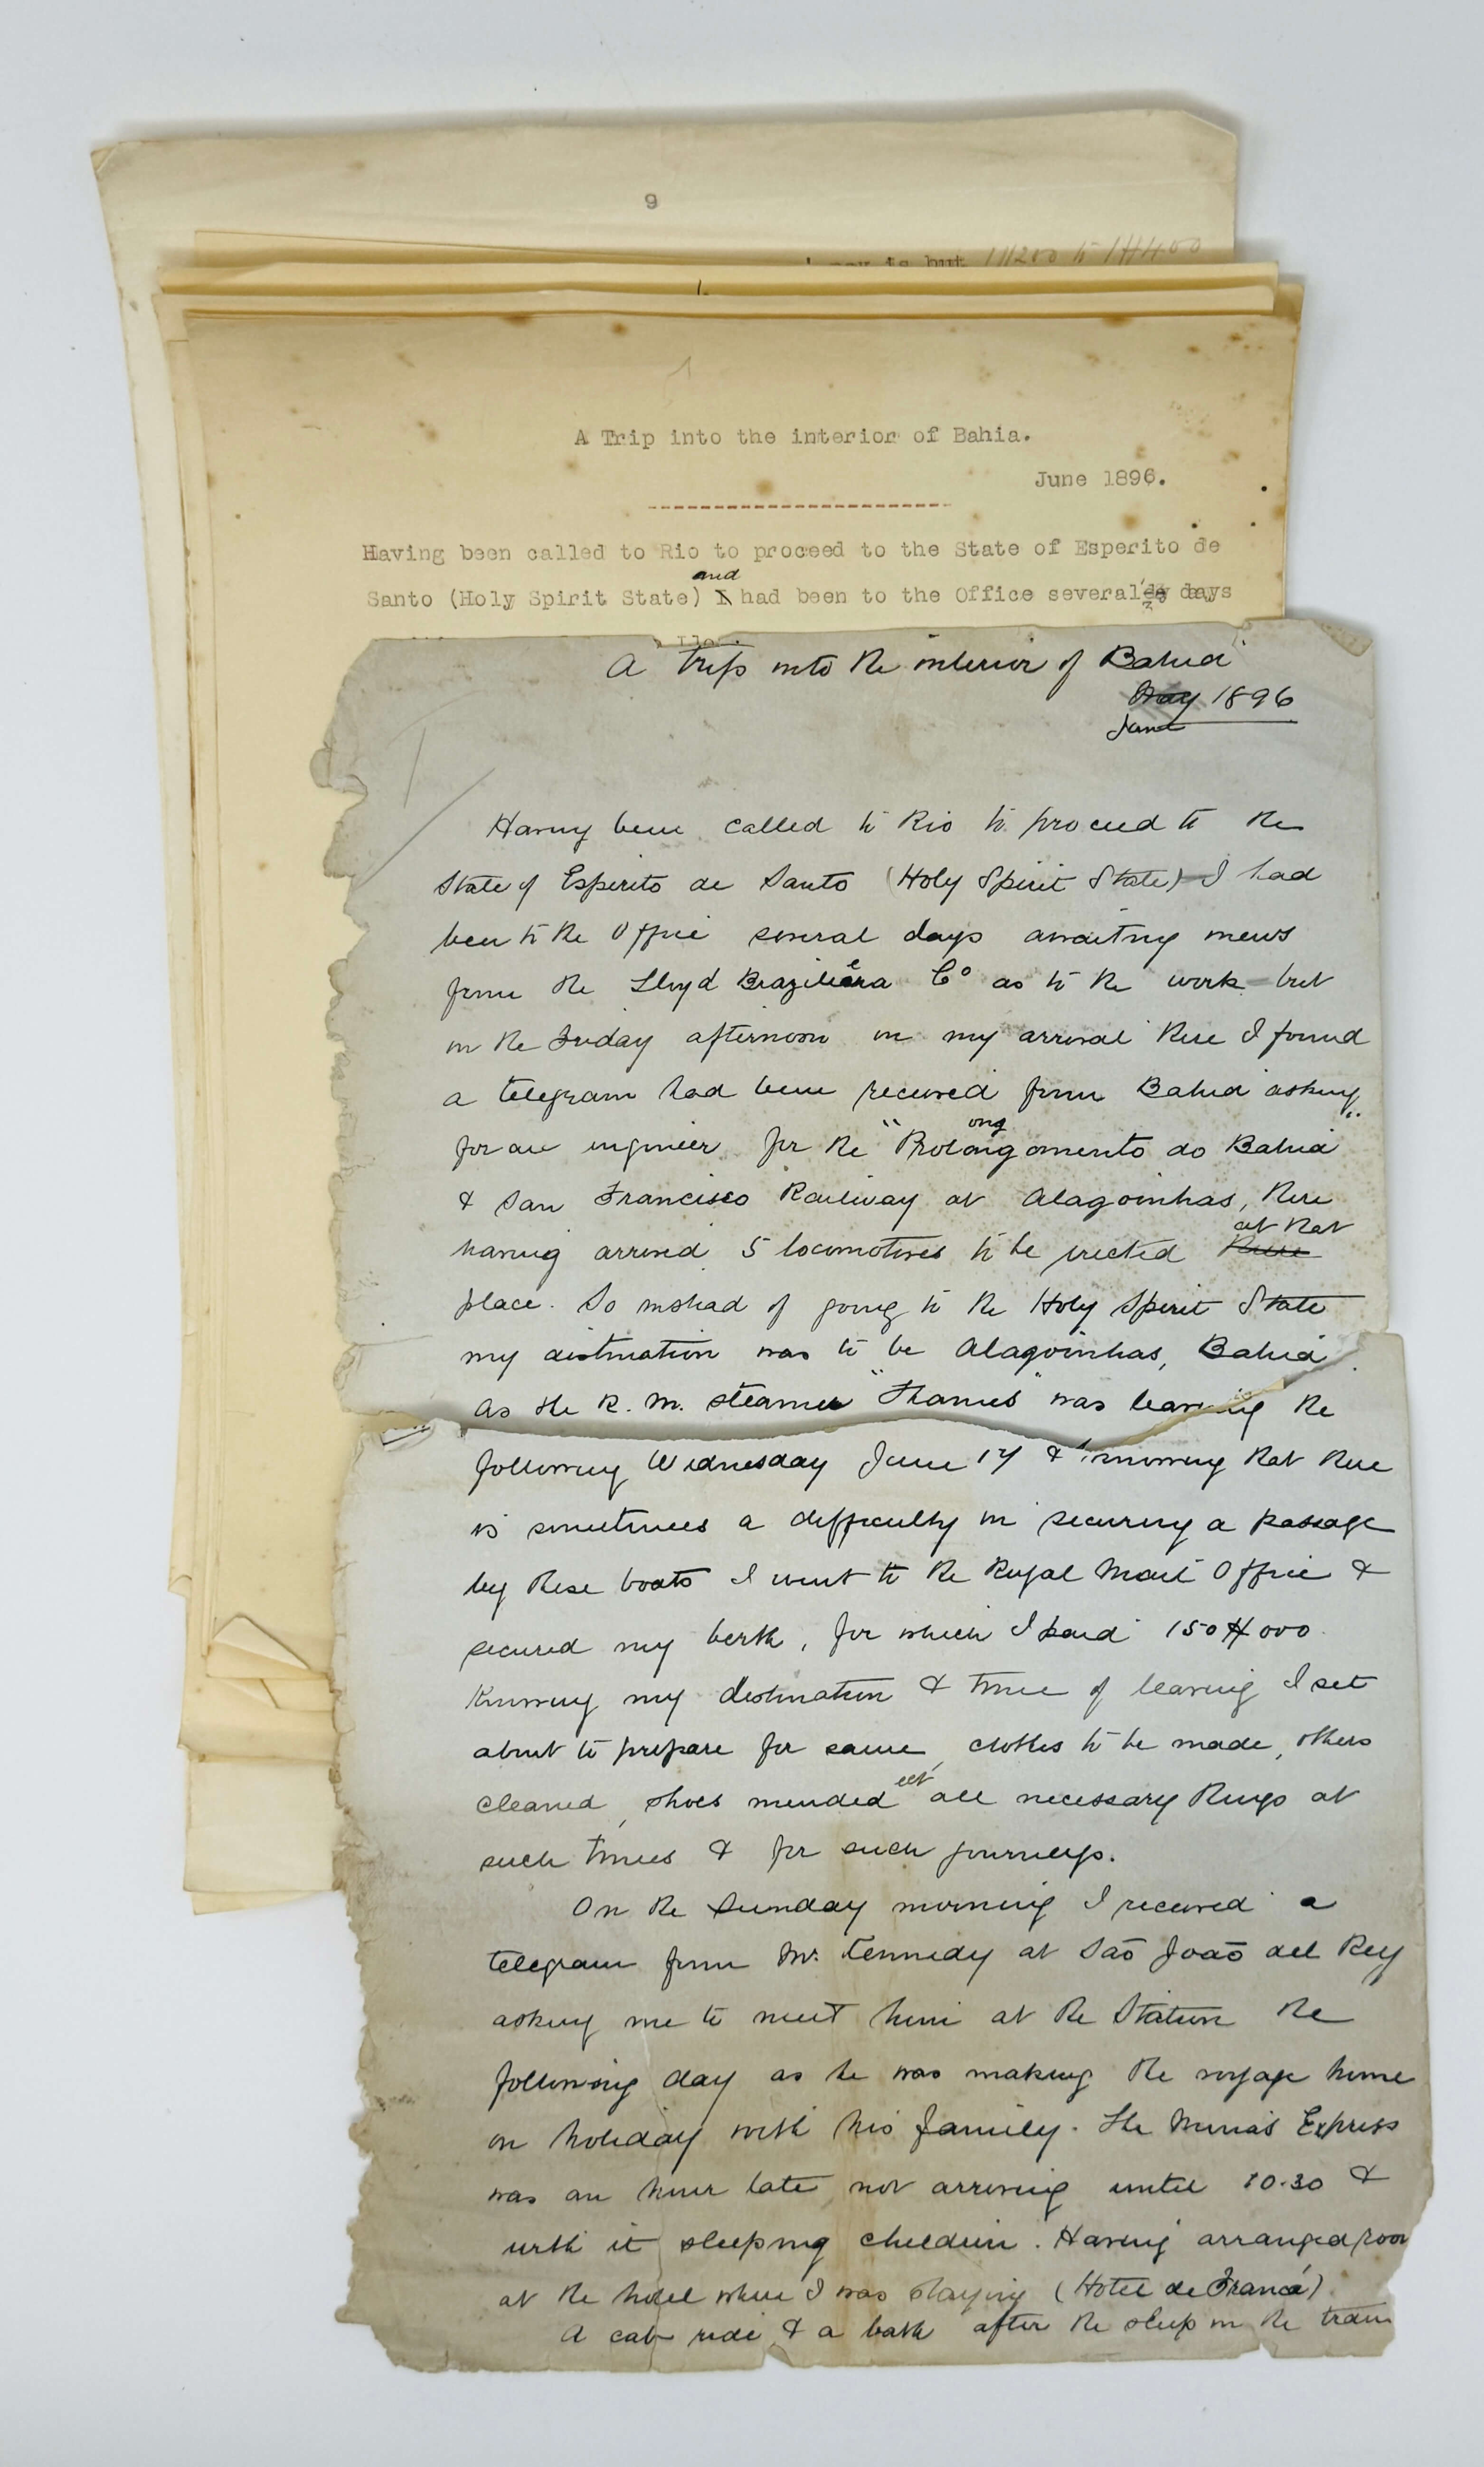 9
is but 1$200 to 1$400
1.
A Trip into the interior of Bahia.
June 1896.
Having been called to Rio to proceed to the State of Esperito de
and
Santo (Holy Spirit State) I had been to the Office several days
A trip into the interior of Bahia
May 1896
June
Having been called to Rio to proceed to the
State of Esperito de Santo (Holy Spirit State) I had
been to the Office several days awaiting news
from the Lloyd Braziliera Co as to the work - but
on the Friday afternoon on my arrival there I found
a telegram had been received from Bahia asking
for an engineer for the "Prolongamento do Bahia"
& San Francisco Railway at Alagoinhas, there
at that
having arrived 5 locomotives to be erected there
place. So instead of going to the Holy Spirit State
my distination was to be Alagoinhas, Bahia.
As the R. M. steamer "Thames" was leaving the
following Wednesday June 17 & knowing that there
is sometimes a difficulty in securing a passage
by these boats I went to the Royal Mail Office &
secured my berth, for which I paid 150$000.
Knowing my destination & time of leaving I set
about to prepare for same, clothes to be made, others
cleaned, shoes mended ect all necessary things at
such times & for such journeys.
On the Sunday morning I received a
telegram from Mr. Kennedy at São João del Rey
asking me to meet him at the Station the
following day as he was making the voyage home
on holiday with his family. The Minas Express
was an hour late, not arriving until 10.30 &
with it sleeping children. Having arranged room
at the hotel where I was staying (Hotel de France)
A cab ride & a bath after the sleep in the train